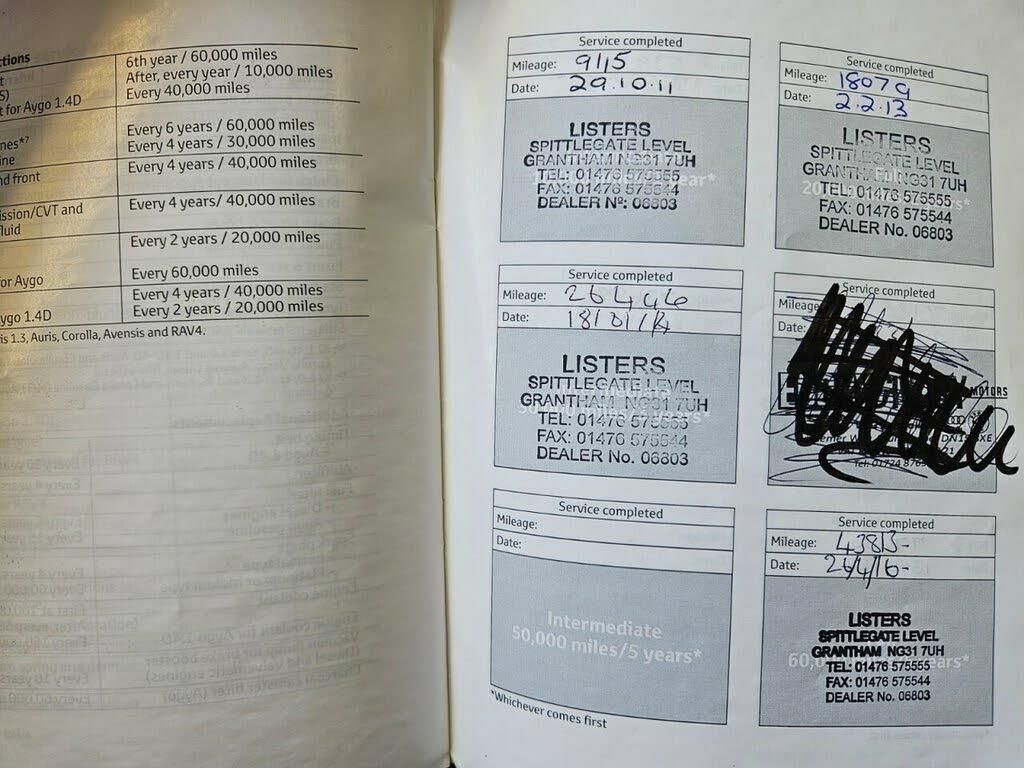 ctions
6th year / 60,000 miles
After, every year / 10,000 miles
Every 40,000 miles
t for Aygo 1.4D
Every 6 years / 60,000 miles
Every 4 years / 30,000 miles
nes*7
ine
nd front
Every 4 years / 40,000 miles
ission/CVT and
fluid
Every 4 years/ 40,000 miles
Every 2 years / 20,000 miles
for Aygo
Every 60,000 miles
Every 4 years / 40,000 miles
ygo 1.4D
Every 2 years / 20,000 miles
is 1.3, Auris, Corolla, Avensis and RAV4.
Service completed
Mileage: 9115
Date: 29.10.11
LISTERS
SPITTLEGATE LEVEL
GRANTHAM NG31 7UH
TEL: 01476 575555
FAX: 01476 575544
DEALER Nº: 06803
Service completed
Mileage: 18079
Date: 2.2.13
LISTERS
SPITTLEGATE LEVEL
GRANTHAM NG31 7UH
TEL: 01476 575555
FAX: 01476 575544
DEALER No. 06803
Service completed
Mileage: 26446
Date: 18/01/14
LISTERS
SPITTLEGATE LEVEL
GRANTHAM NG31 7UH
TEL: 01476 575555
FAX: 01476 575544
DEALER No. 06803
Service completed
Mileage
Date:
MOTORS
Tel: 01724
Service completed
Mileage:
Date:
Intermediate
50,000 miles/5 years*
Service completed
Mileage: 43813-
Date: 26/4/16-
LISTERS
SPITTLEGATE LEVEL
GRANTHAM NG31 7UH
TEL: 01476 575555
FAX: 01476 575544
DEALER No. 06803
*Whichever comes first